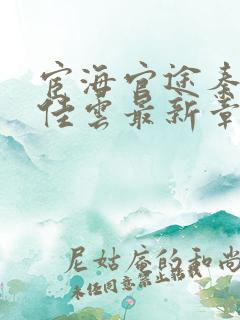 宦海官途秦
佳雲最新章
尼姑庵的和尚
未经同意禁止转载